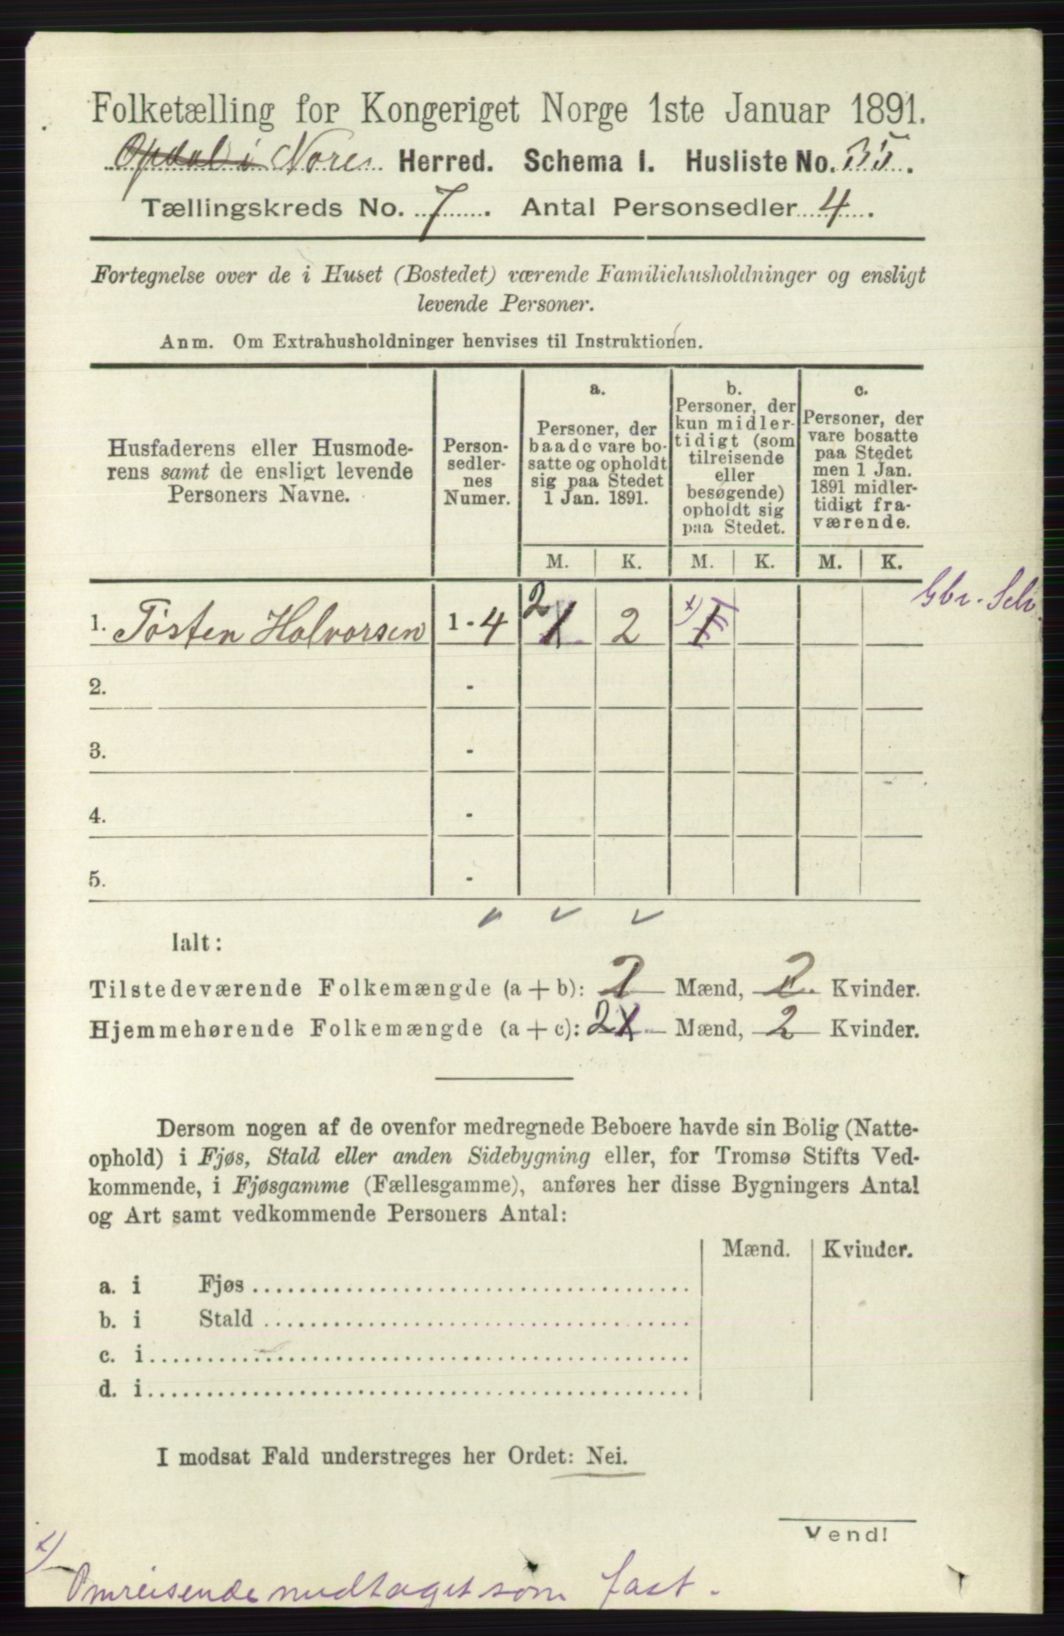 Folketælling for Kongeriget Norge 1ste Januar 1891.
Opdal i Nore Herred. Schema I. Husliste No. 35.
Tællingskreds No. 7. Antal Personsedler 4.
Fortegnelse over de i Huset (Bostedet) værende Familiehusholdninger og ensligt
levende Personer.
Anm. Om Extrahusholdninger henvises til Instruktionen.
Husfaderens eller Husmode-
rens samt de ensligt levende
Personers Navne.
Person-
sedler-
nes
Numer.
a.
Personer, der
baade vare bo-
satte og opholdt
sig paa Stedet
1 Jan. 1891.
b.
Personer, der
kun midler-
tidigt (som
tilreisende
eller
besøgende)
opholdt sig
paa Stedet.
c.
Personer, der
vare bosatte
paa Stedet
men 1 Jan.
1891 midler-
tidigt fra-
værende.
M. K. M. K. M. K.
Gbr. Selv
1. Tösten Halvorsen 1 - 4 2 1 2 x) 1
2. -
3. -
4. -
5. -
Ialt:
Tilstedeværende Folkemængde (a + b): 2 Mænd, 2 Kvinder.
Hjemmehørende Folkemængde (a + c): 2 1 Mænd, 2 Kvinder.
Dersom nogen af de ovenfor medregnede Beboere havde sin Bolig (Natte-
ophold) i Fjøs, Stald eller anden Sidebygning eller, for Tromsø Stifts Ved-
kommende, i Fjøsgamme (Fællesgamme), anføres her disse Bygningers Antal
og Art samt vedkommende Personers Antal:
Mænd. Kvinder.
a. i Fjøs
b. i Stald
c. i
d. i
I modsat Fald understreges her Ordet: Nei.
Vend!
x) Omreisende medtaget som fast.